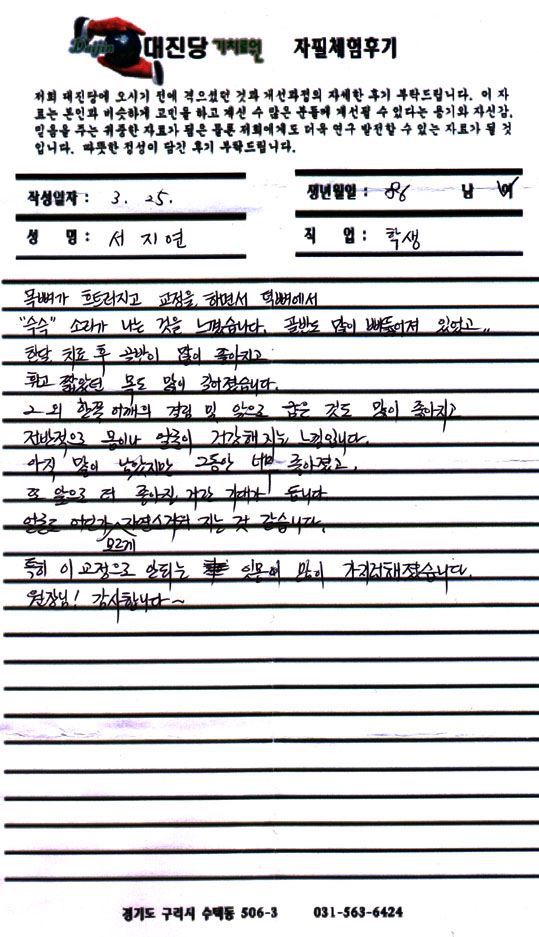 Daijin 대진당 기치료원 자필체험후기
저희 대진당에 오시기 전에 겪으셨던 것과 개선과정의 자세한 후기 부탁드립니다. 이 자
료는 본인과 비슷하게 고민을 하고 계신 수 많은 분들에 개선될 수 있다는 용기와 자신감,
믿음을 주는 귀중한 자료가 됨은 물론 저희에게도 더욱 연구 발전할 수 있는 자료가 될 것
입니다. 따뜻한 정성이 담긴 후기 부탁드립니다.
작성일자 : 3. 25. 생년월일 : 86 남 여
성 명 : 서지연 직 업 : 학생
목뼈가 흐트러지고 교정을 하면서 턱뼈에서
"슥슥" 소리가 나는 것을 느꼈습니다. 골반도 많이 삐뚤어져 있었고,,
한달 치료 후 골반이 많이 좋아지고
휘고 짧았던 목도 많이 길어졌습니다.
그 외 한쪽 어깨의 결림 및 앞으로 굽은 것도 많이 좋아지고
전반적으로 몸이나 얼굴이 건강해지는 느낌입니다.
아직 많이 남았지만 그동안 너무 좋아졌고,
또 앞으로 더 좋아질 거란 기대가 듭니다
얼굴도 어딘가 모르게 자연스러워 지는 것 같습니다.
특히 이 교정으로 안되는 잇몸이 많이 가지런해졌습니다.
원장님! 감사합니다~
경기도 구리시 수택동 506-3 031-563-6424